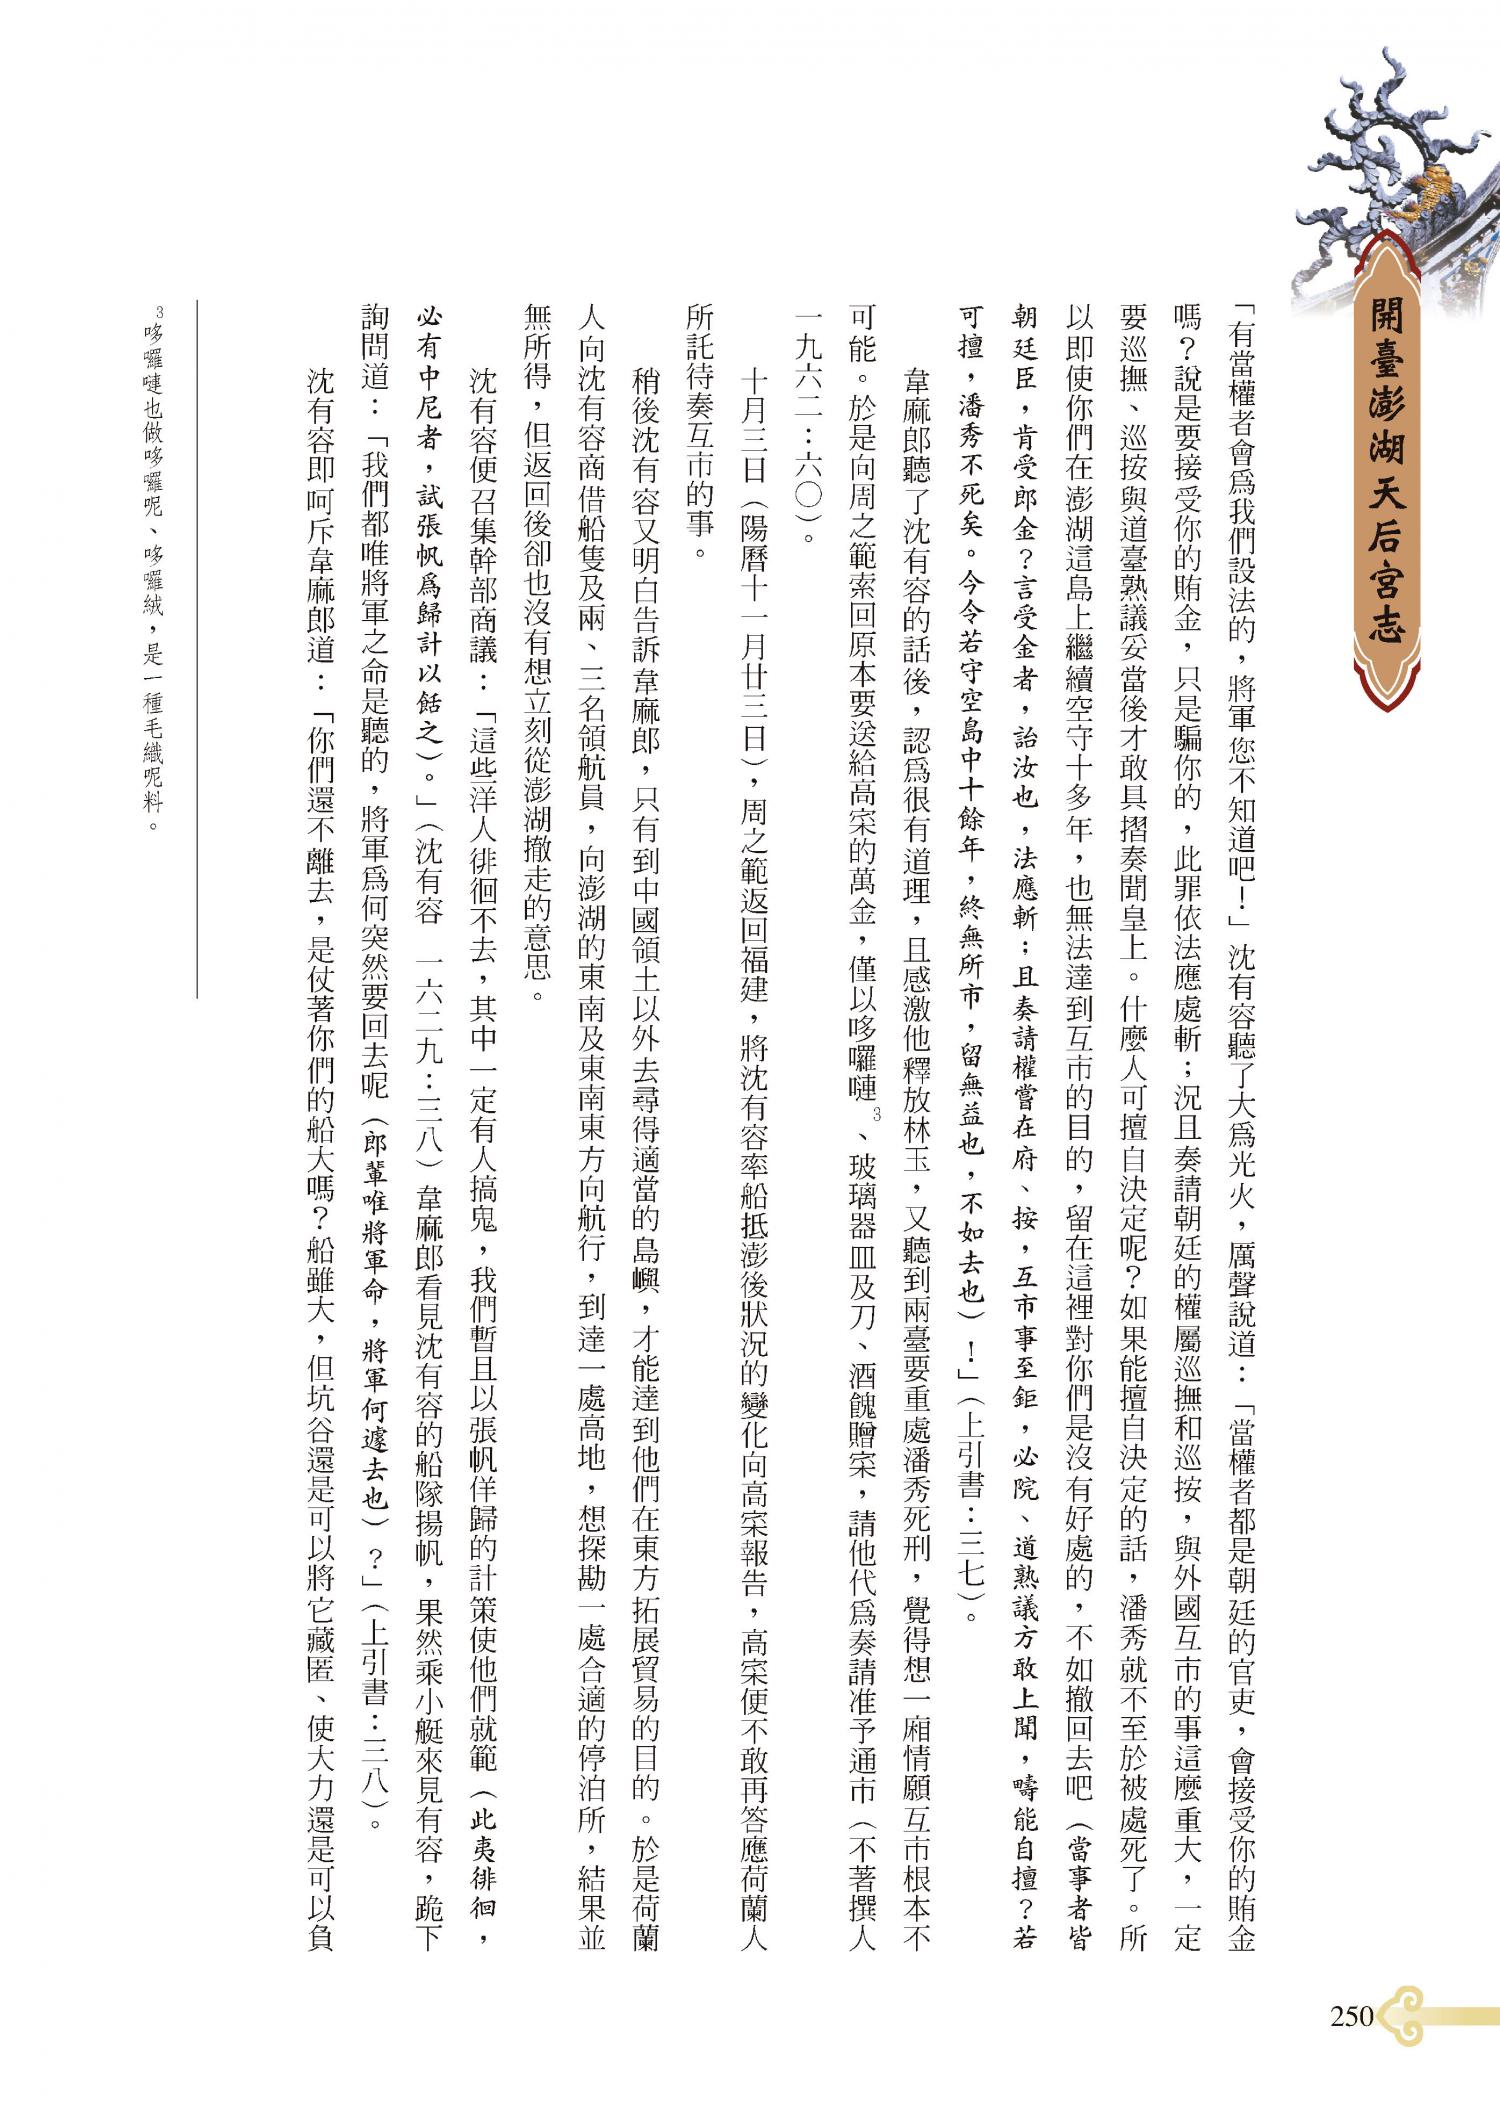 開臺澎湖天后宮志
「有當權者會爲我們設法的，將軍您不知道吧！」沈有容聽了大爲光火，厲聲說道：「當權者都是朝廷的官吏，會接受你的賄金
嗎？說是要接受你的賄金，只是騙你的，此罪依法應處斬；況且奏請朝廷的權屬巡撫和巡按，與外國互市的事這麼重大，一定
要巡撫、巡按與道臺熟議妥當後才敢具摺奏聞皇上。什麼人可擅自決定呢？如果能擅自決定的話，潘秀就不至於被處死了。所
以即使你們在澎湖這島上繼續空守十多年，也無法達到互市的目的，留在這裡對你們是沒有好處的，不如撤回去吧（當事者皆
朝廷臣，肯受郎金？言受金者，詒汝也，法應斬；且奏請權嘗在府、按，互市事至鉅，必院、道熟議方敢上聞，疇能自擅？若
可擅，潘秀不死矣。今令若守空島中十餘年，終無所市，留無益也，不如去也）！」（上引書：三七）。
韋麻郎聽了沈有容的話後，認爲很有道理，且感激他釋放林玉，又聽到兩臺要重處潘秀死刑，覺得想一廂情願互市根本不
可能。於是向周之範索回原本要送給高寀的萬金，僅以哆囉嗹3、玻璃器皿及刀、酒餽贈寀，請他代爲奏請准予通市（不著撰人
一九六二：六〇）。
十月三日（陽曆十一月廿三日），周之範返回福建，將沈有容率船抵澎後狀況的變化向高寀報告，高寀便不敢再答應荷蘭人
所託待奏互市的事。
稍後沈有容又明白告訴韋麻郎，只有到中國領土以外去尋得適當的島嶼，才能達到他們在東方拓展貿易的目的。於是荷蘭
人向沈有容商借船隻及兩、三名領航員，向澎湖的東南及東南東方向航行，到達一處高地，想探勘一處合適的停泊所，結果並
無所得，但返回後卻也沒有想立刻從澎湖撤走的意思。
沈有容便召集幹部商議：「這些洋人徘徊不去，其中一定有人搞鬼，我們暫且以張帆佯歸的計策使他們就範（此夷徘徊，
必有中尼者，試張帆爲歸計以餂之）。」（沈有容　一六二九：三八）韋麻郎看見沈有容的船隊揚帆，果然乘小艇來見有容，跪下
詢問道：「我們都唯將軍之命是聽的，將軍爲何突然要回去呢（郎輩唯將軍命，將軍何遽去也）？」（上引書：三八）。
沈有容即呵斥韋麻郎道：「你們還不離去，是仗著你們的船大嗎？船雖大，但坑谷還是可以將它藏匿、使大力還是可以負
3 哆囉嗹也做哆囉呢、哆囉絨，是一種毛織呢料。
250